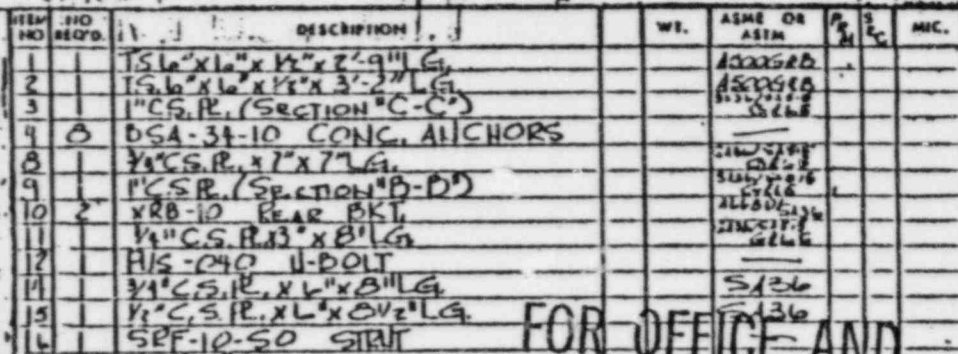 ITEM NO NO REQ'D. DESCRIPTION WT. ASME OR ASTM P R M S E C MIC.
1 1 TS 6"x6"x 1/2" x 2'-9" LG. A500GRB
2 1 TS. 6"x6"x 1/2" x 3'-2" LG A500GRB
3 1 1" C.S. PL. (SECTION "C-C")
4 8 DSA-34-10 CONC. ANCHORS —
8 1 3/4" C.S. PL. x 7" x 7" LG.
9 1 1" C.S. PL. (SECTION "B-B")
10 2 XRB-10 REAR BKT. SA36
11 1 C.S. PL. x3" x 8" LG.
12 1 H/S-040 U-BOLT —
14 1 3/4" C.S. PL. x 6" x 8" LG SA36
15 1 1/2" C.S. PL. x 6" x 8 1/2" LG. SA36
16 1 SRF-10-50 STRUT
FOR OFFICE AND